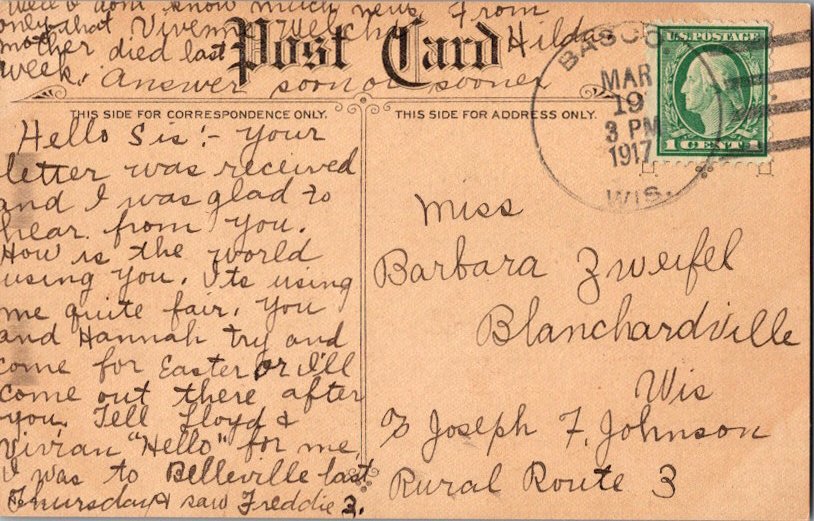 Well I don't know much news. From
only that Vivenne Welch's Hilda
mother died last
week. Answer soon or sooner
Post Card
THIS SIDE FOR CORRESPONDENCE ONLY.
THIS SIDE FOR ADDRESS ONLY.
BASCO
MAR
19
3 PM
1917
WIS.
U.S. POSTAGE
1 CENT 1
Hello Sis:- Your
letter was received
and I was glad to
hear from you.
How is the world
using you. Its using
me quite fair. You
and Hannah try and
come for Easter or I'll
come out there after
you. Tell Lloyd &
Vivian "Hello" for me.
I was to Belleville last
Thursday & saw Freddie Z.
Miss
Barbara Zweifel
Blanchardville
Wis
c/o Joseph F. Johnson
Rural Route 3